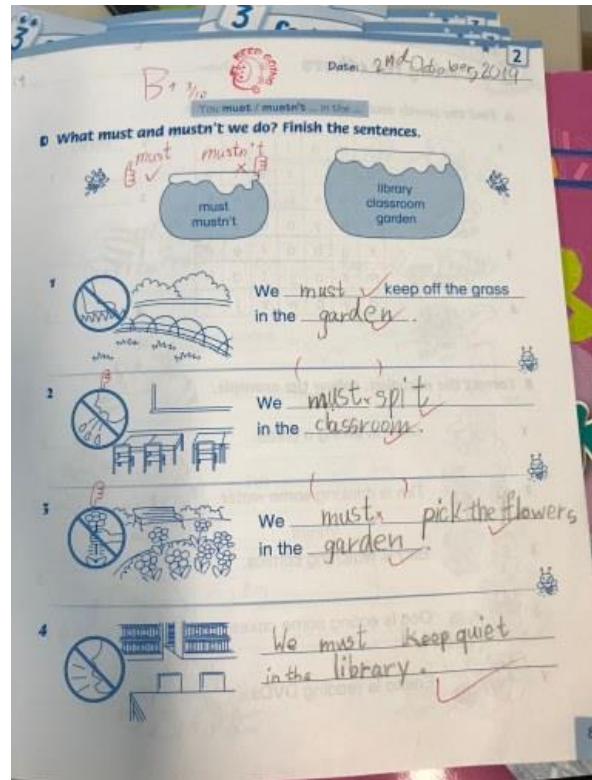 3
3
2
Date: 2nd October, 2019
B+ 7/10
KEEP GOING
You must / mustn't ... in the ...
D What must and mustn't we do? Finish the sentences.
must mustn't
must
mustn't
library
classroom
garden
1
We must keep off the grass
in the garden.
2
We must spit
in the classroom.
3
We must pick the flowers
in the garden.
4
We must keep quiet
in the library.
8